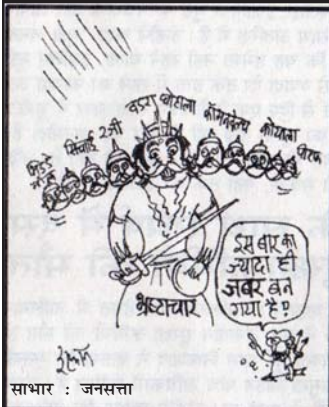 सिंचाई 2जी वडरा घोटाला कॉमनवेल्थ कोयला
भ्रष्टाचार
इस बार का
ज्यादा ही
जबर बन
गया है?
साभार : जनसत्ता